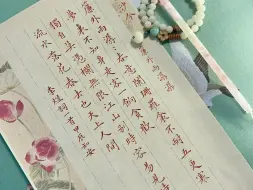 簾外雨潺潺春意闌珊羅衾不耐五更寒
夢裏不知身是客一餉貪歡
獨自莫憑欄無限江山別時容易見時難
流水落花春去也天上人間
李煜詞一首甲辰